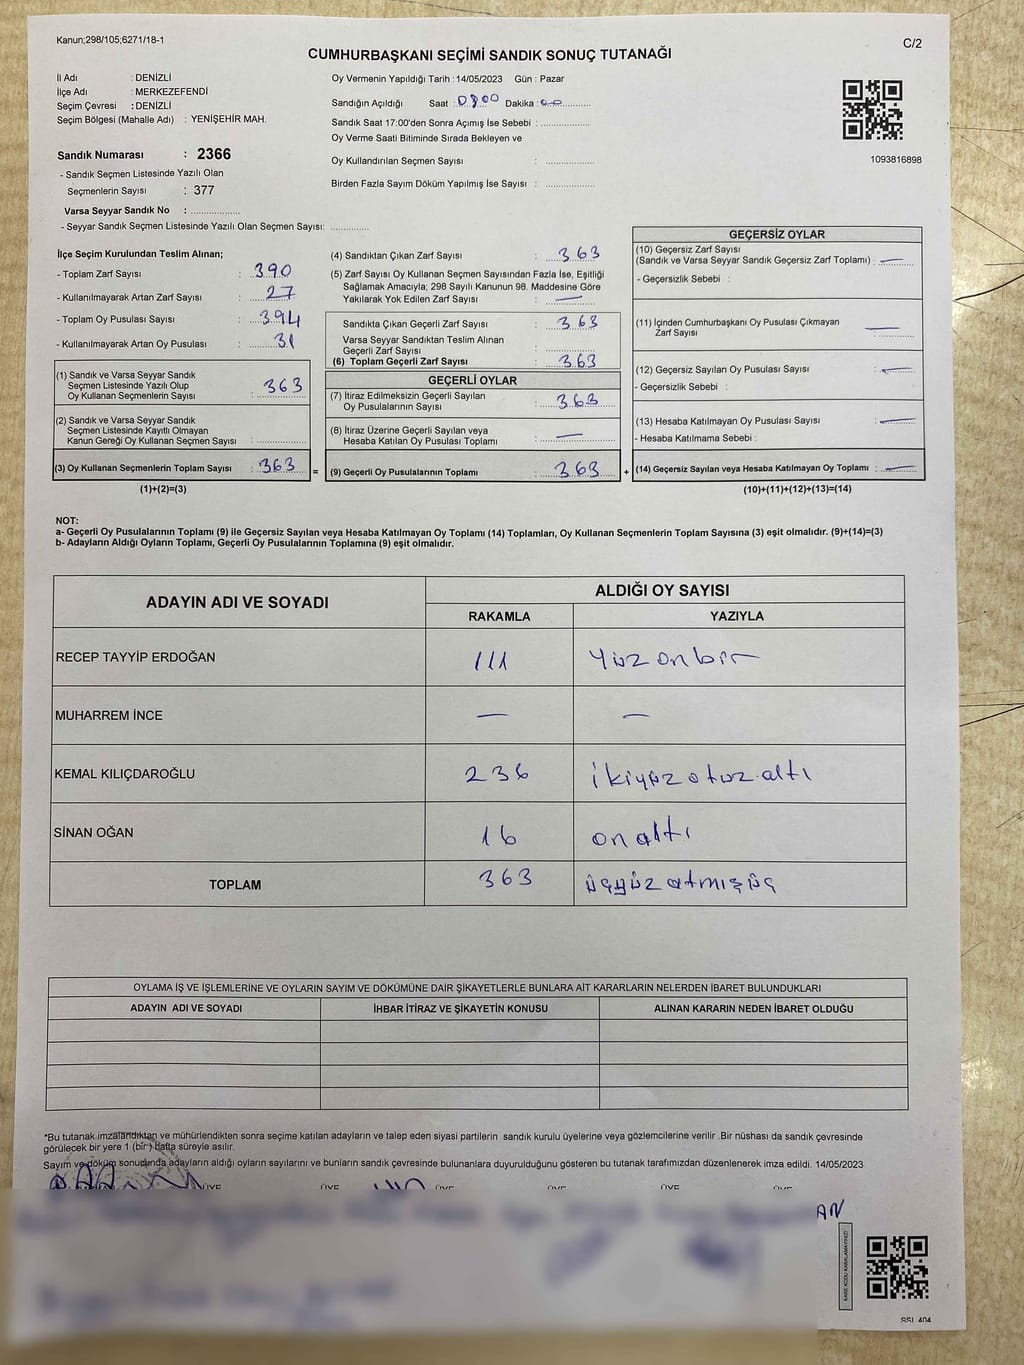 Kanun;298/105;6271/18-1
C/2
CUMHURBAŞKANI SEÇİMİ SANDIK SONUÇ TUTANAĞI
İl Adı : DENİZLİ
İlçe Adı : MERKEZEFENDİ
Seçim Çevresi : DENİZLİ
Seçim Bölgesi (Mahalle Adı) : YENİŞEHİR MAH.
Sandık Numarası : 2366
- Sandık Seçmen Listesinde Yazılı Olan
Seçmenlerin Sayısı : 377
Varsa Seyyar Sandık No : ...................
- Seyyar Sandık Seçmen Listesinde Yazılı Olan Seçmen Sayısı: ..............
Oy Vermenin Yapıldığı Tarih :14/05/2023 Gün : Pazar
Sandığın Açıldığı Saat : 0800 Dakika : 00
Sandık Saat 17:00'den Sonra Açımış İse Sebebi : ..................
Oy Verme Saati Bitiminde Sırada Bekleyen ve
Oy Kullandırılan Seçmen Sayısı : ..................
Birden Fazla Sayım Döküm Yapılmış İse Sayısı : ..................
1093816898
İlçe Seçim Kurulundan Teslim Alınan;
- Toplam Zarf Sayısı : 390
- Kullanılmayarak Artan Zarf Sayısı : 27
- Toplam Oy Pusulası Sayısı : 394
- Kullanılmayarak Artan Oy Pusulası : 31
(1) Sandık ve Varsa Seyyar Sandık
Seçmen Listesinde Yazılı Olup
Oy Kullanan Seçmenlerin Sayısı : 363
(2) Sandık ve Varsa Seyyar Sandık
Seçmen Listesinde Kayıtlı Olmayan
Kanun Gereği Oy Kullanan Seçmen Sayısı : ..................
(3) Oy Kullanan Seçmenlerin Toplam Sayısı : 363 =
(1)+(2)=(3)
(4) Sandıktan Çıkan Zarf Sayısı : 363
(5) Zarf Sayısı Oy Kullanan Seçmen Sayısından Fazla İse, Eşitliği
Sağlamak Amacıyla; 298 Sayılı Kanunun 98. Maddesine Göre
Yakılarak Yok Edilen Zarf Sayısı : —
Sandıkta Çıkan Geçerli Zarf Sayısı : 363
Varsa Seyyar Sandıktan Teslim Alınan
Geçerli Zarf Sayısı : ..................
(6) Toplam Geçerli Zarf Sayısı : 363
GEÇERLİ OYLAR
(7) İtiraz Edilmeksizin Geçerli Sayılan
Oy Pusulalarının Sayısı : 363
(8) İtiraz Üzerine Geçerli Sayılan veya
Hesaba Katılan Oy Pusulası Toplamı : —
(9) Geçerli Oy Pusulalarının Toplamı : 363 +
GEÇERSİZ OYLAR
(10) Geçersiz Zarf Sayısı
(Sandık ve Varsa Seyyar Sandık Geçersiz Zarf Toplamı) : —
- Geçersizlik Sebebi :
(11) İçinden Cumhurbaşkanı Oy Pusulası Çıkmayan
Zarf Sayısı : —
(12) Geçersiz Sayılan Oy Pusulası Sayısı : —
- Geçersizlik Sebebi :
(13) Hesaba Katılmayan Oy Pusulası Sayısı : —
- Hesaba Katılmama Sebebi :
(14) Geçersiz Sayılan veya Hesaba Katılmayan Oy Toplamı : —
(10)+(11)+(12)+(13)=(14)
NOT:
a- Geçerli Oy Pusulalarının Toplamı (9) ile Geçersiz Sayılan veya Hesaba Katılmayan Oy Toplamı (14) Toplamları, Oy Kullanan Seçmenlerin Toplam Sayısına (3) eşit olmalıdır. (9)+(14)=(3)
b- Adayların Aldığı Oyların Toplamı, Geçerli Oy Pusulalarının Toplamına (9) eşit olmalıdır.
ADAYIN ADI VE SOYADI
ALDIĞI OY SAYISI
RAKAMLA YAZIYLA
RECEP TAYYİP ERDOĞAN 111 Yüz onbir
MUHARREM İNCE — —
KEMAL KILIÇDAROĞLU 236 ikiyüz otuz altı
SİNAN OĞAN 16 on altı
TOPLAM 363 üçyüz atmışüç
OYLAMA İŞ VE İŞLEMLERİNE VE OYLARIN SAYIM VE DÖKÜMÜNE DAİR ŞİKAYETLERLE BUNLARA AİT KARARLARIN NELERDEN İBARET BULUNDUKLARI
ADAYIN ADI VE SOYADI İHBAR İTİRAZ VE ŞİKAYETİN KONUSU ALINAN KARARIN NEDEN İBARET OLDUĞU
*Bu tutanak imzalandıktan ve mühürlendikten sonra seçime katılan adayların ve talep eden siyasi partilerin sandık kurulu üyelerine veya gözlemcilerine verilir .Bir nüshası da sandık çevresinde
görülecek bir yere 1 (bir) hafta süreyle asılır.
Sayım ve döküm sonucunda adayların aldığı oyların sayılarını ve bunların sandık çevresinde bulunanlara duyurulduğunu gösteren bu tutanak tarafımızdan düzenlenerek imza edildi. 14/05/2023
ÜYE ÜYE ÜYE ÜYE ÜYE ÜYE
AN
KARE KODU KARALAMAYINIZ!
SSI_404